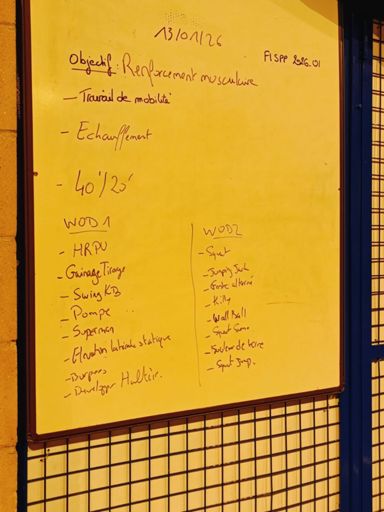 13/01/26
FISPP 2026.01
Objectif : Renforcement musculaire
- Travail de mobilité
- Echauffement
- 40'/20'
WOD 1
- HRPU
- Gainage Tirage
- Swing KB
- Pompe
- Superman
- Elevation latérale statique
- Burpees
- Developper Haltère.
WOD 2
- Squat
- Jumping Jack
- Fente alterné
- Killy
- Wall Ball
- Squat Sumo
- Soulevé de terre
- Squat Jump.